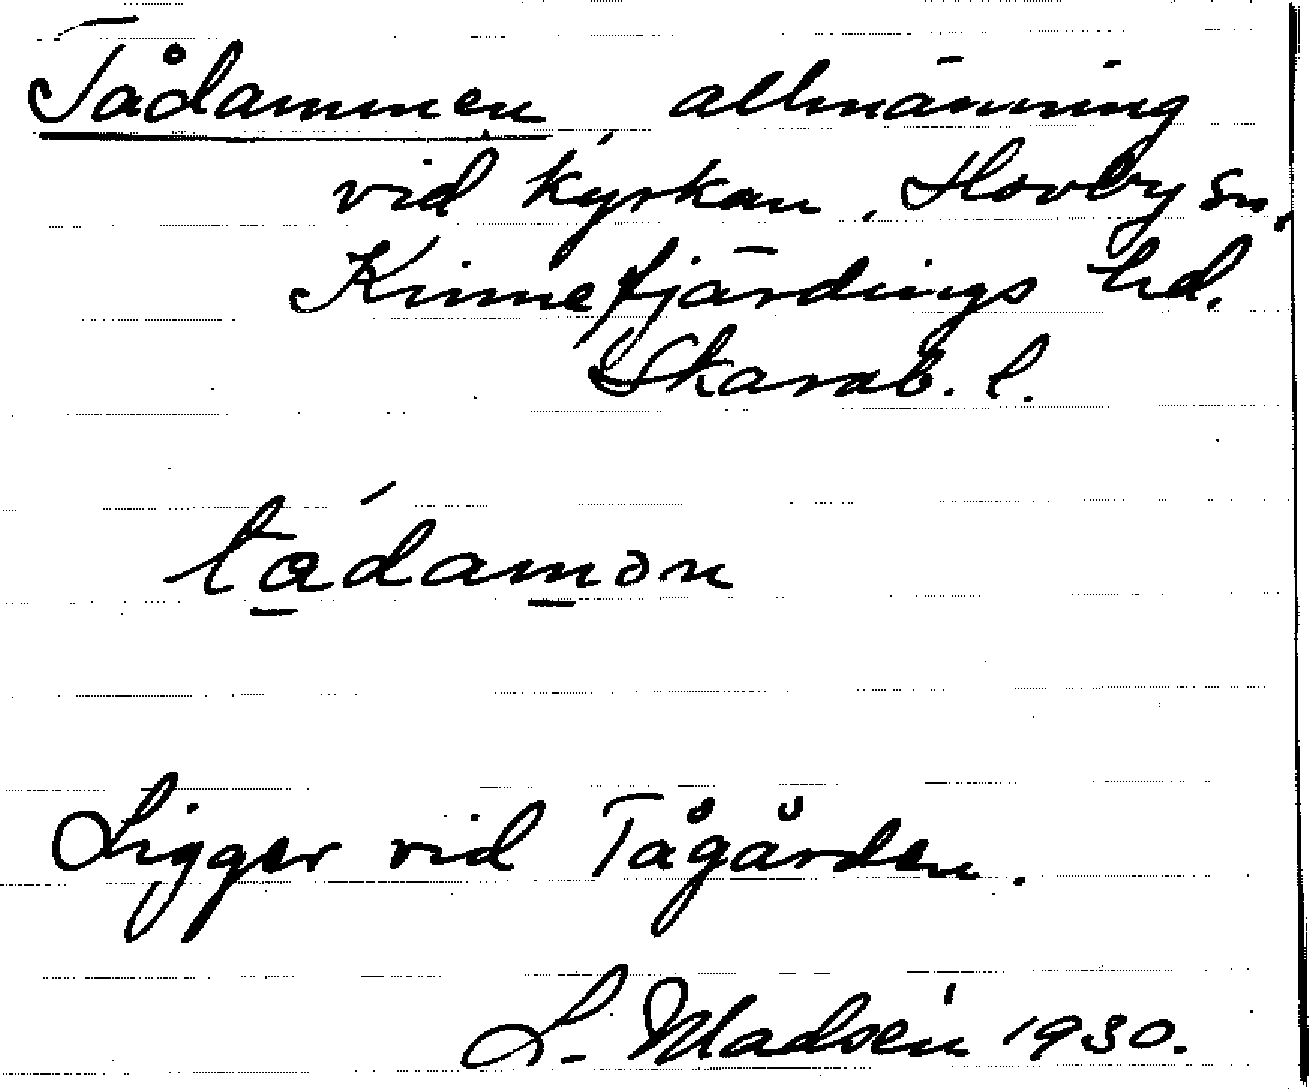 Tådammen, allmänning
vid kyrkan, Hovby sn,
Kinnefjärdings hd.
Skarab. l.
tådamən
Ligger vid Tågården.
L. Madsén 1930.